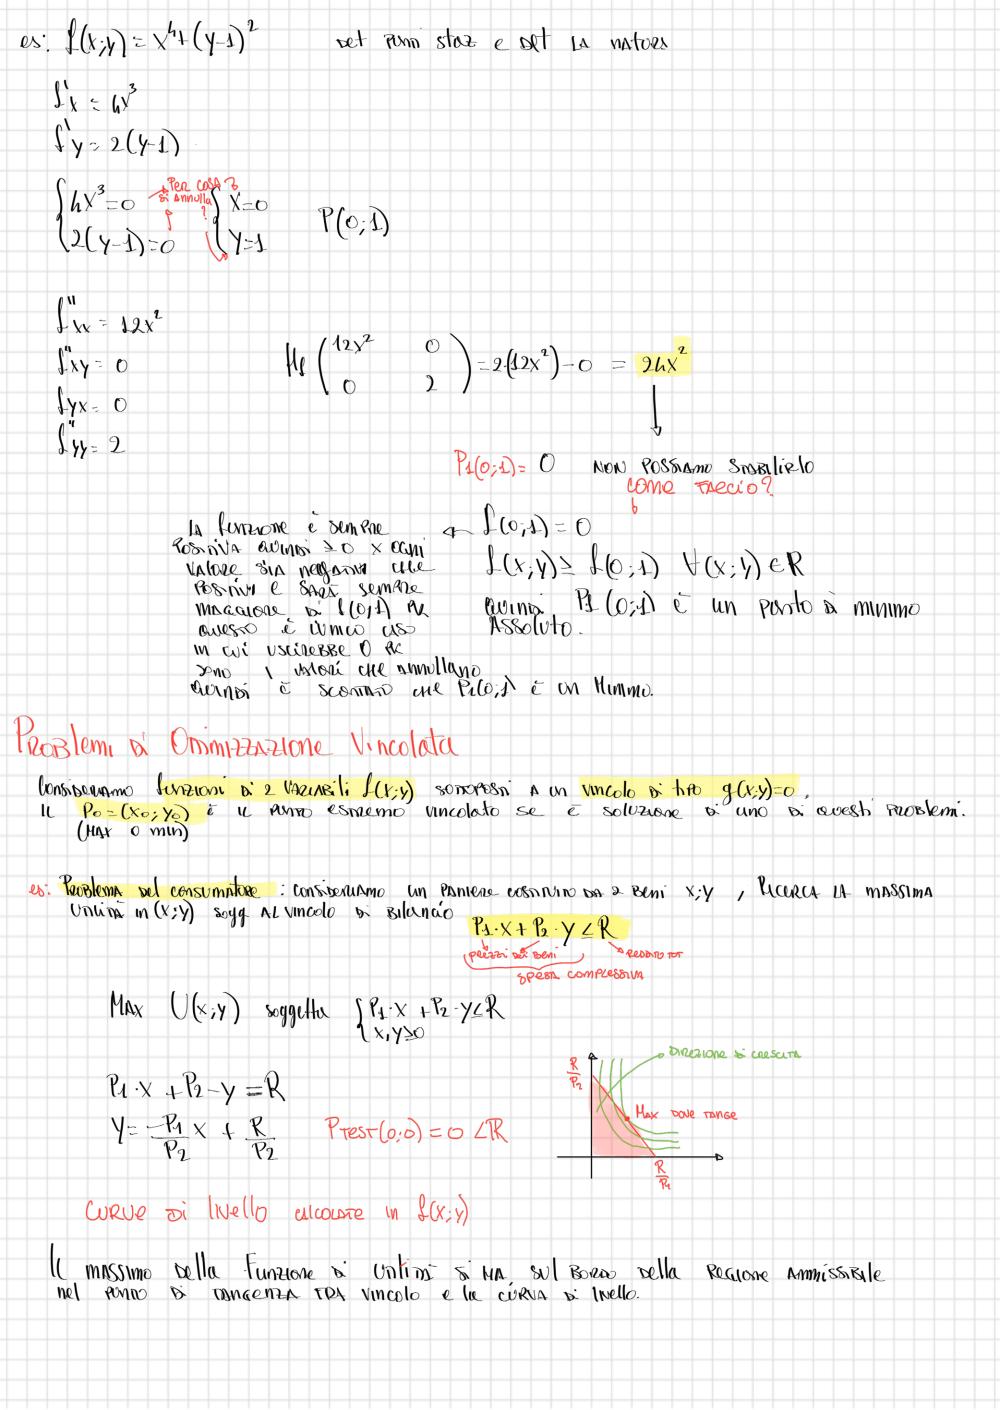 es: f(x;y) = x⁴+(y-1)²   det punti staz e det la natura
f'x = 4x³
f'y = 2(y-1)
{4x³=0 → Per cosa si annulla? {x=0   P(0;1)
{2(y-1)=0   {y=1
f''xx = 12x²
f''xy = 0
f''yx = 0
f''yy = 2
Hf (12x² 0
0 2) = 2(12x²)-0 = 24x²
P1(0;1) = 0   NON POSSIAMO STABILIRLO
COME FACCIO?
f(0,1) = 0
f(x;y) ≥ f(0;1) ∀(x;y) ∈ R
quindi P1(0;1) è un punto di minimo
ASSOLUTO.
← la funzione è sempre
positiva quindi ≥0 x ogni
valore sia negativi che
positivi e sarà sempre
maggiore di f(0,1) pk
questo è l'unico caso
in cui uscirebbe 0 pk
sono i valori che annullano
quindi è scontato che P1(0;1) è un minimo.
PROBLEMI DI OTTIMIZZAZIONE VINCOLATA
Consideriamo funzioni di 2 variabili f(x;y) sottoposti a un vincolo di tipo g(x;y)=0.
Il P0=(x0;y0) è il punto estremo vincolato se è soluzione di uno di questi problemi.
(MAX O min)
es: Problema del consumatore: consideriamo un paniere costituito da 2 beni x;y, ricerca la massima
utilità in (x;y) sogg al vincolo di bilancio
P1·x + P2·y ≤ R
prezzi dei beni   reddito tot
spesa complessiva
MAX U(x;y) soggetta {P1·x + P2·y ≤ R
{x,y≥0
P1·x + P2-y = R
y = -P1/P2 x + R/P2   Ptest(0;0) = 0 < R
R/P2
DIREZIONE di crescita
Max dove tange
R/P1
CURVE DI livello calcolate in f(x;y)
Il massimo della funzione di utilità si ha sul bordo della regione ammissibile
nel punto di tangenza tra vincolo e la curva di livello.